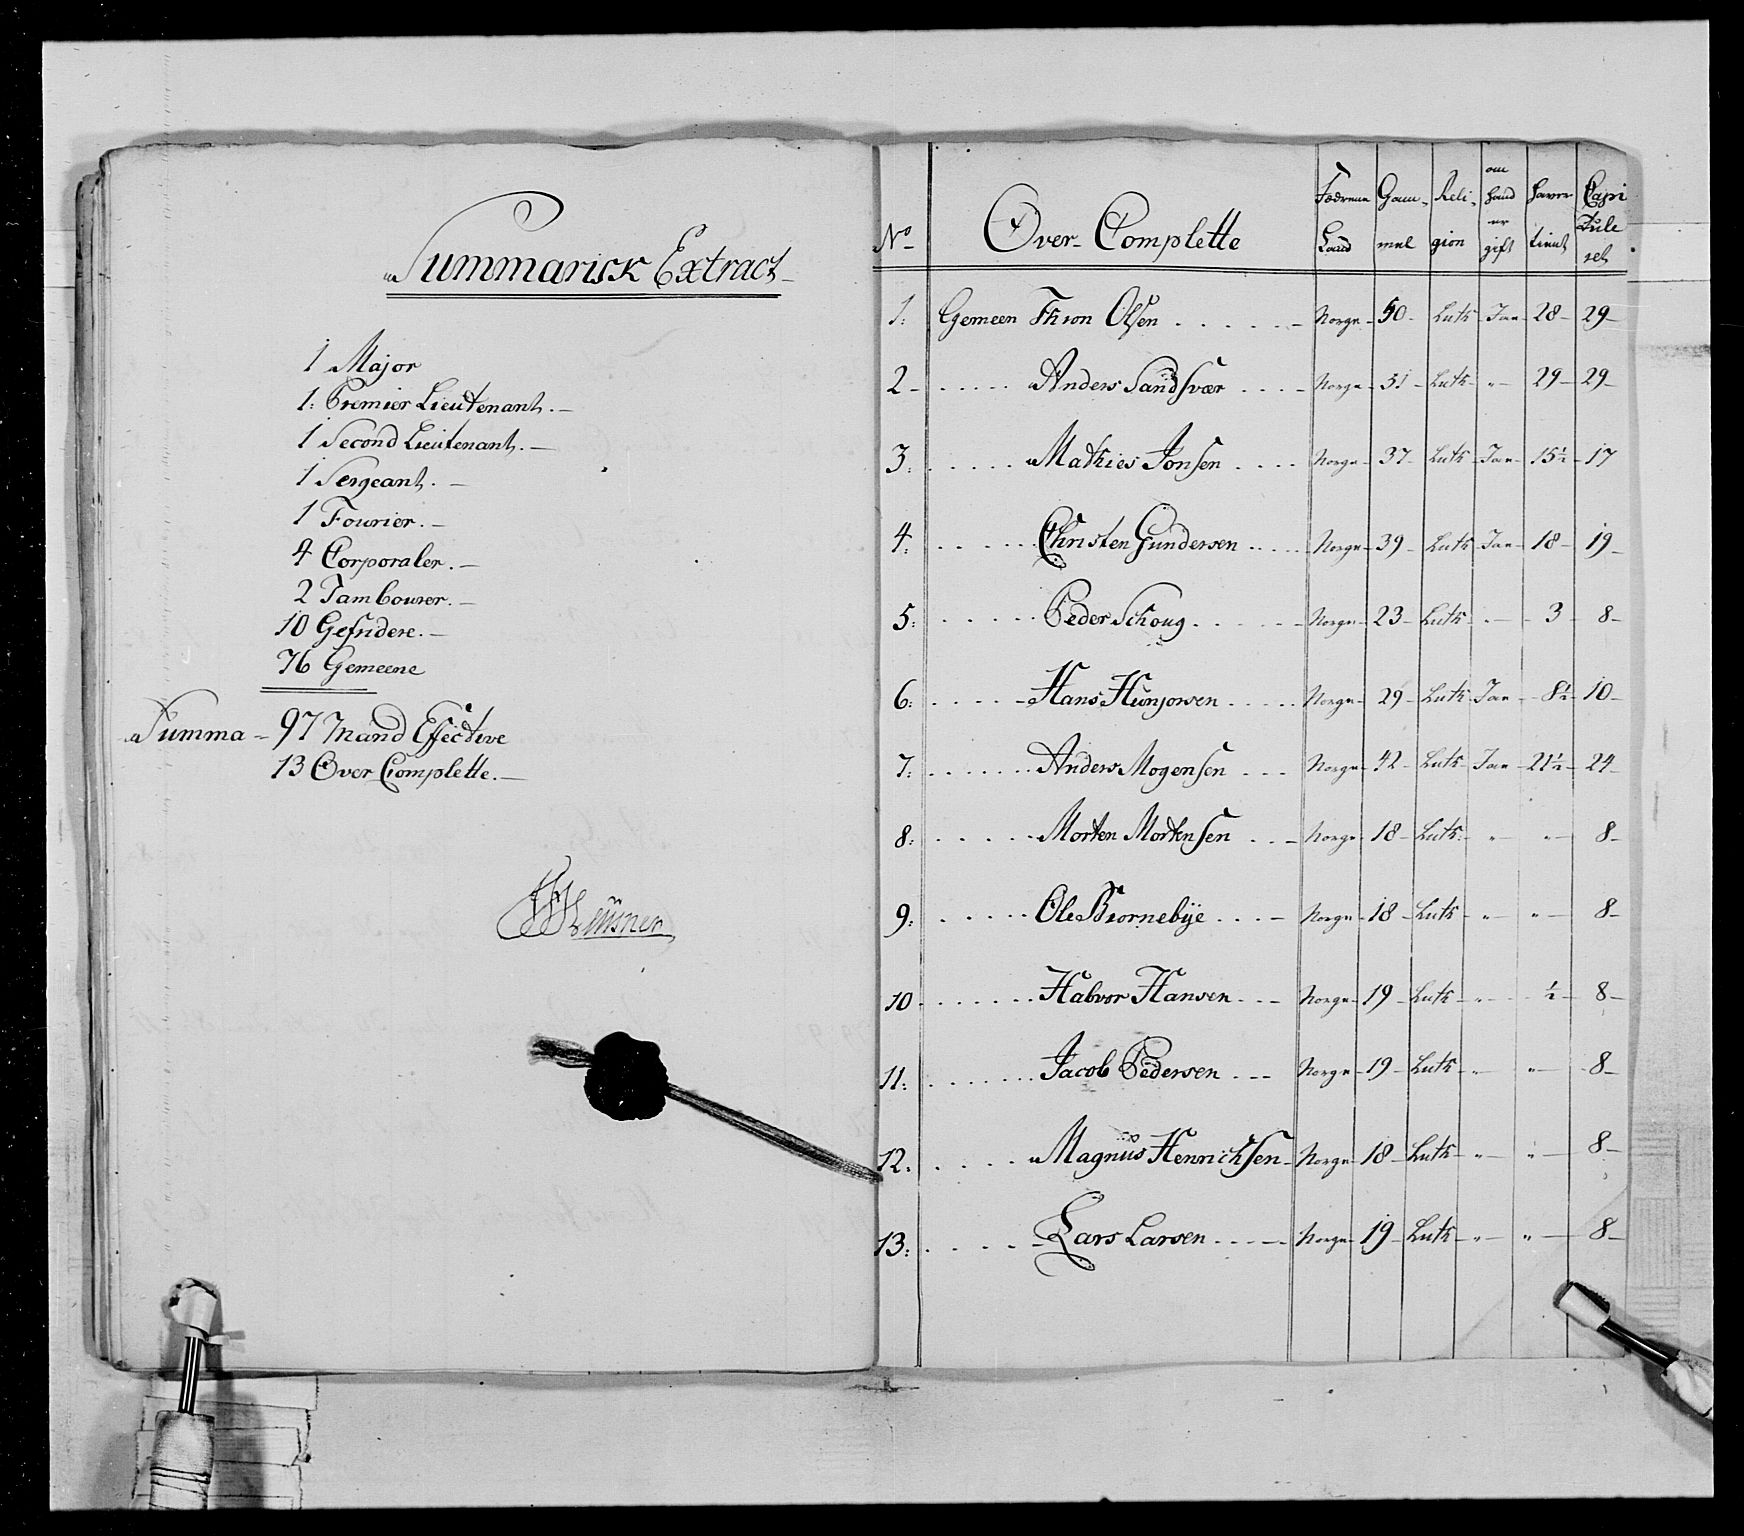 Summarisk Extract
1 Major
1: Premier Lieutenant. —
1 Second Lieutenant. —
1 Sergeant. —
1 Fourier. —
4 Corporaler. —
2 Tambourer. —
10 Gefridere. —
76 Gemeene
Summa — 97 Mand Effective
13 Over Complette. —
No Over-Complette Fædrene Land Gam-mel Reli-gion om hand er gift haver tient Capitule ret
1: Gemeen Thron Olsen . . . . . . Norge 50 Luth Jae 28 29
2 . . . . . Anders Sandsvær . . . . Norge 51 Luth " 29 29
3: . . . . . Mathies Jonsen . . . . Norge 37 Luth Jae 15½ 17
4: . . . . . Christen Gundersen . . . . Norge 39 Luth Jae 18 19
5: . . . . . Peder Schoug . . . . . . Norge 23 Luth " 3 8
6: . . . . . Hans . . . . . Norge 29 Luth Jae 8½ 10
7: . . . . . . . Anders Mogensen . . . Norge 42 Luth Jae 21½ 24
8: . . . . . Morten Mortensen . . . Norge 18 Luth: " " 8
9: . . . . . Ole Biørnebÿe . . . . Norge 18 Luth " " 8
10 . . . . . . . Halvor Hansen . . . Norge 19 Luth " ½ 8
11: . . . . . . . Jacob Pedersen . . . Norge 19 Luth " " 8
12: . . . . Magnus Henrichsen Norge 18 Luth " " 8
13: . . . . Lars Larsen . . . . . Norge 19 Luth " " 8